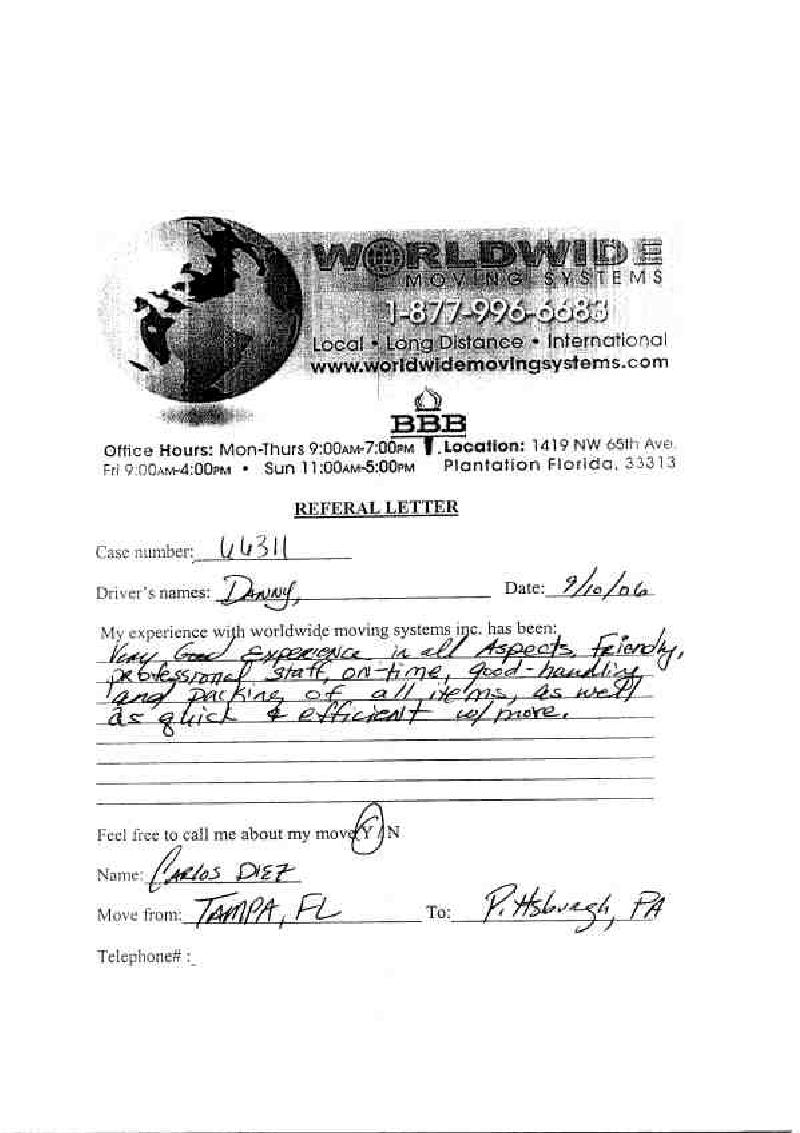 WORLDWIDE
MOVING SYSTEMS
1-877-996-6683
Local • Long Distance • International
www.worldwidemovingsystems.com
BBB
Office Hours: Mon-Thurs 9:00AM-7:00PM
Fri 9:00AM-4:00PM • Sun 11:00AM-5:00PM
Location: 1419 NW 65th Ave.
Plantation Florida, 33313
REFERAL LETTER
Case number: 66311
Driver's names: Danny, Date: 9/10/06
My experience with worldwide moving systems inc. has been:
Very Good Experience in all Aspects, friendly,
professional staff, on-time, good-handling
and packing of all items, as well
as quick & efficient w/ more.
Feel free to call me about my move Y / N
Name: CARLOS DIEZ
Move from: TAMPA, FL To: Pittsburgh, PA
Telephone# :